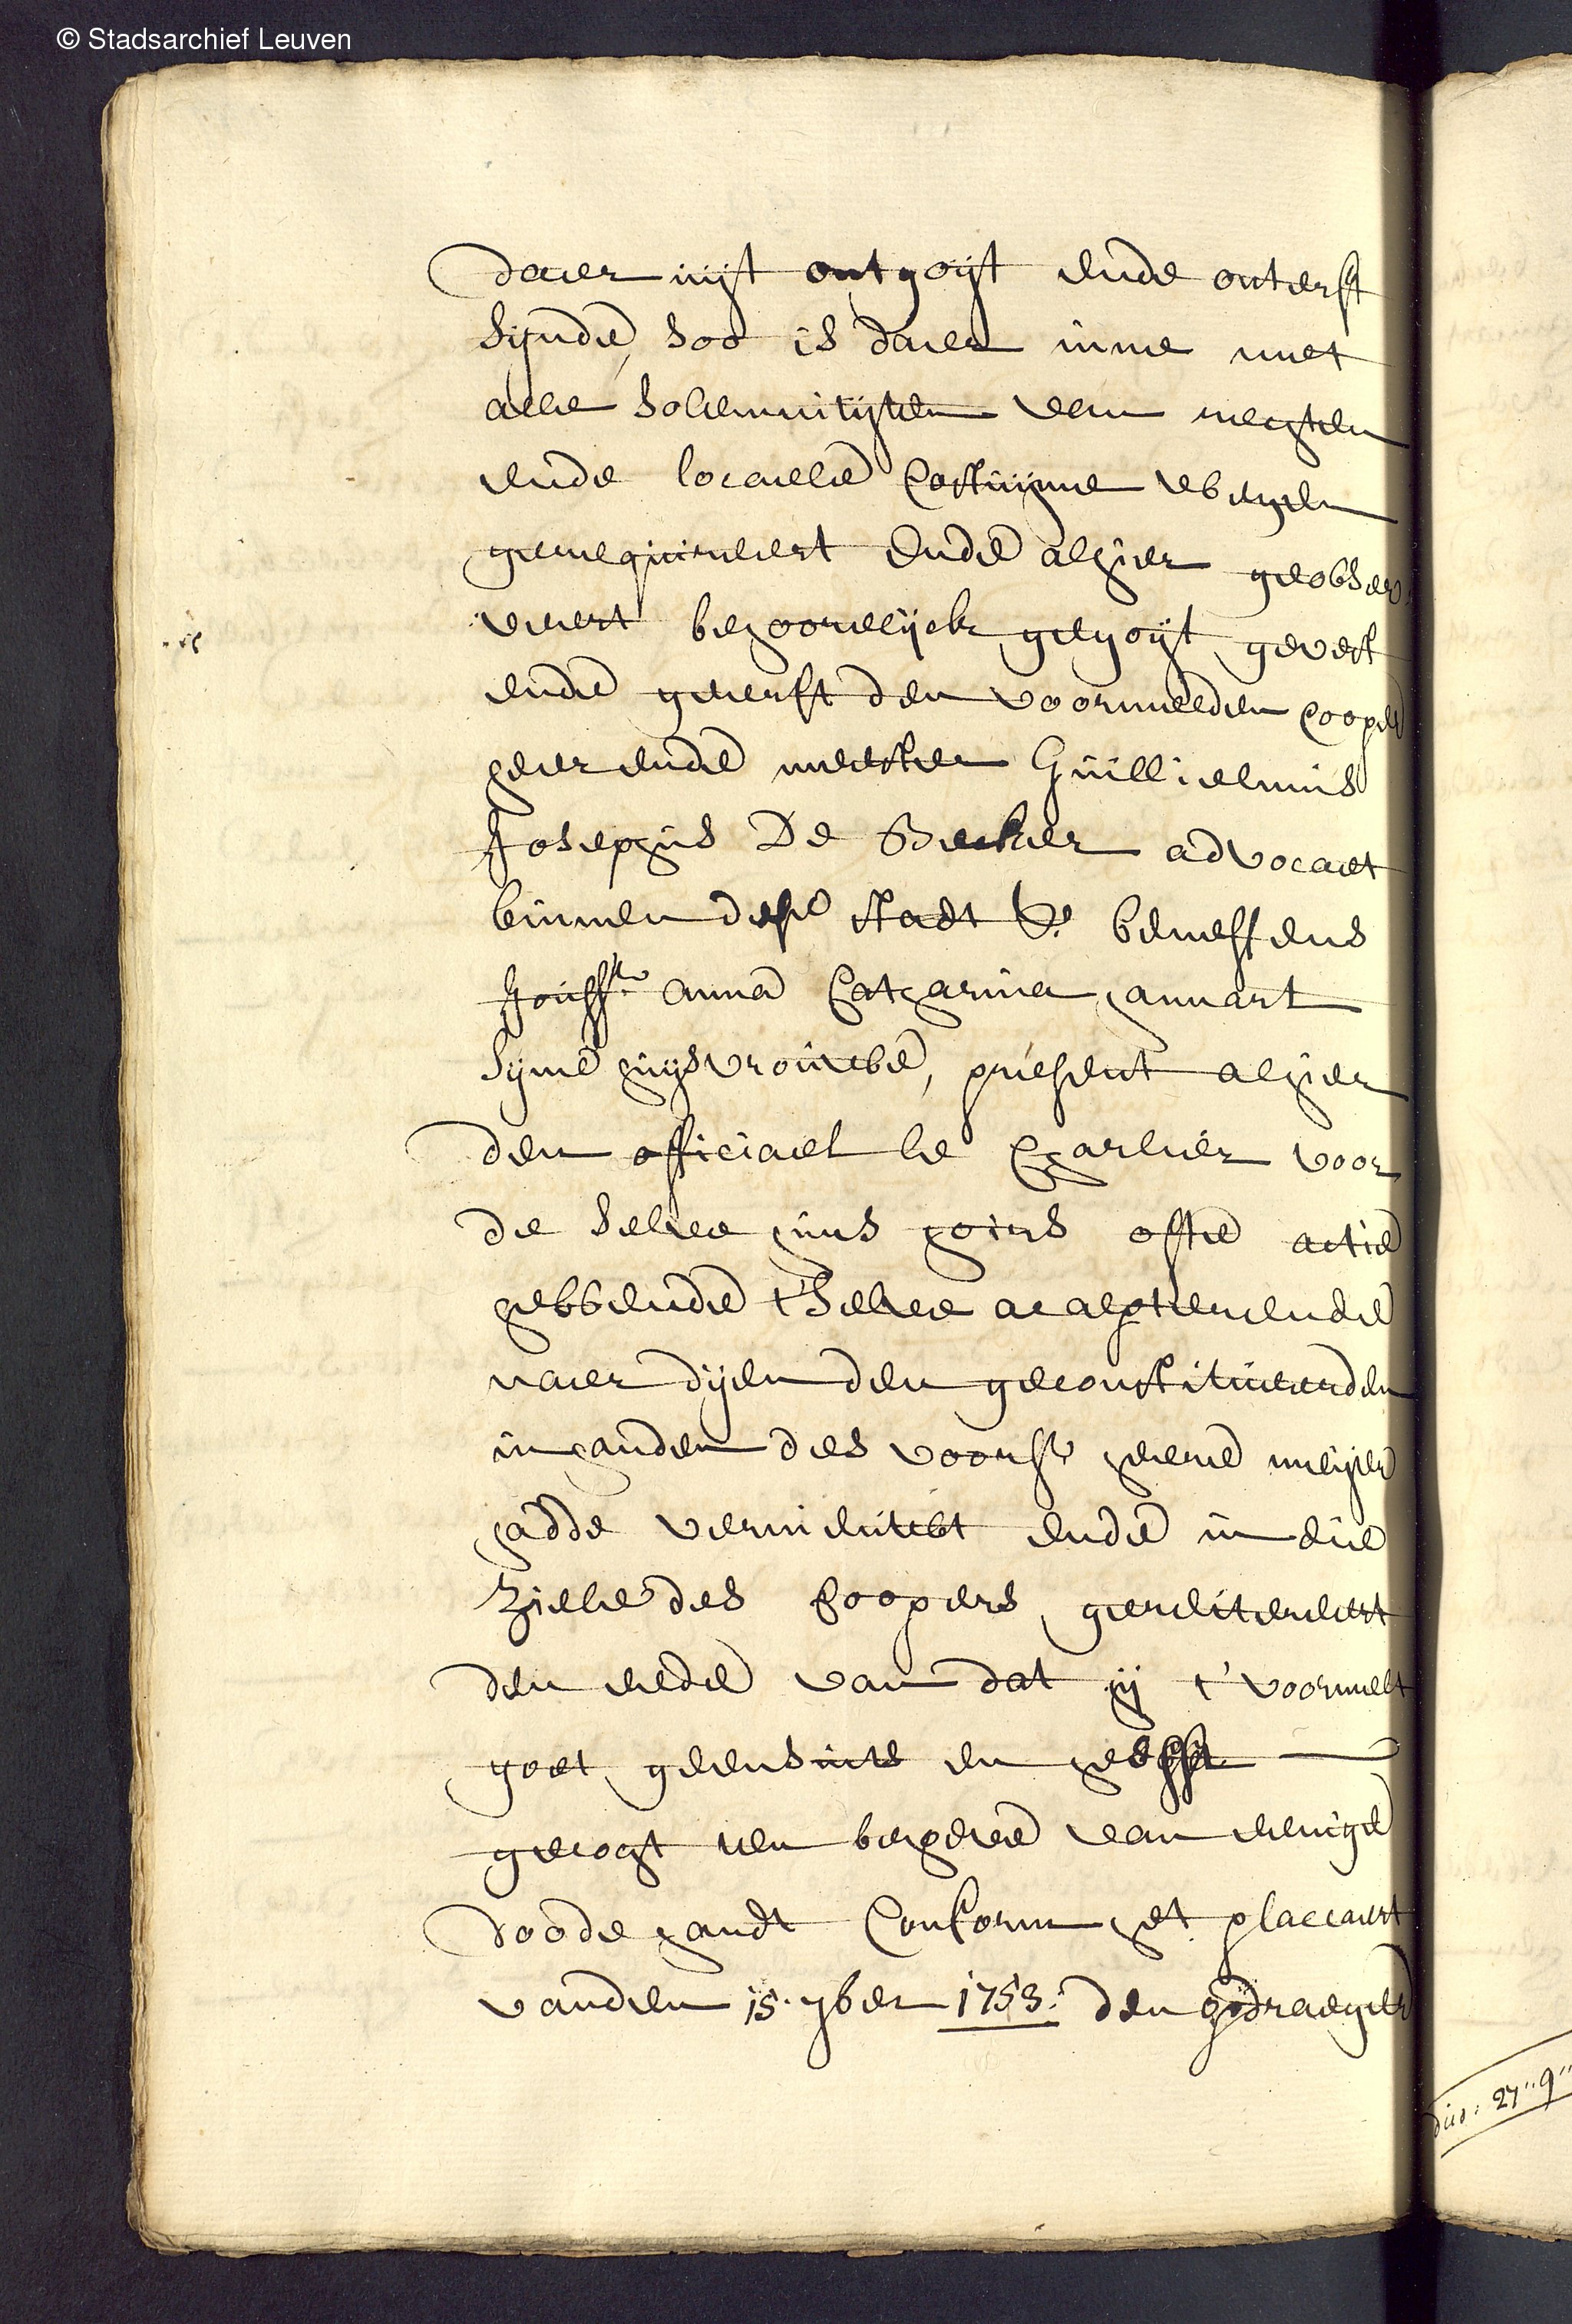 © Stadsarchief Leuven
daer uijt ontgoijt ende onterft
sijnde, soo is daer inne met
alle solemnitijten van rechten
ende locaele costuijme wegen
gerequireert ende alhier geobser
veert behoorelijck gegoijt gevest
ende geerft den voormelden cooper
heer ende meester Guillielmus
Josephus De Becker advocaet
binnen dese stadt beneffens
Jouffre anna Catharina hannart
sijne huijsvrouwe, present alhier
den officiael le Charlier voor
de selve hun hoirs ofte actie
hebbende t'selve accepterende
naer dijen den geconstitueerden
in handen des voors heere meijer
hadde vernieuwt ende in die
ziele des coopers gereitereert
den eede van dat hij t'voormelt
goet geensints en heeft
gecocht ten behoeve van eenige
doode handt Conform het placcaert
vanden 15. 7ber 1753: den opdraeger
27"9"